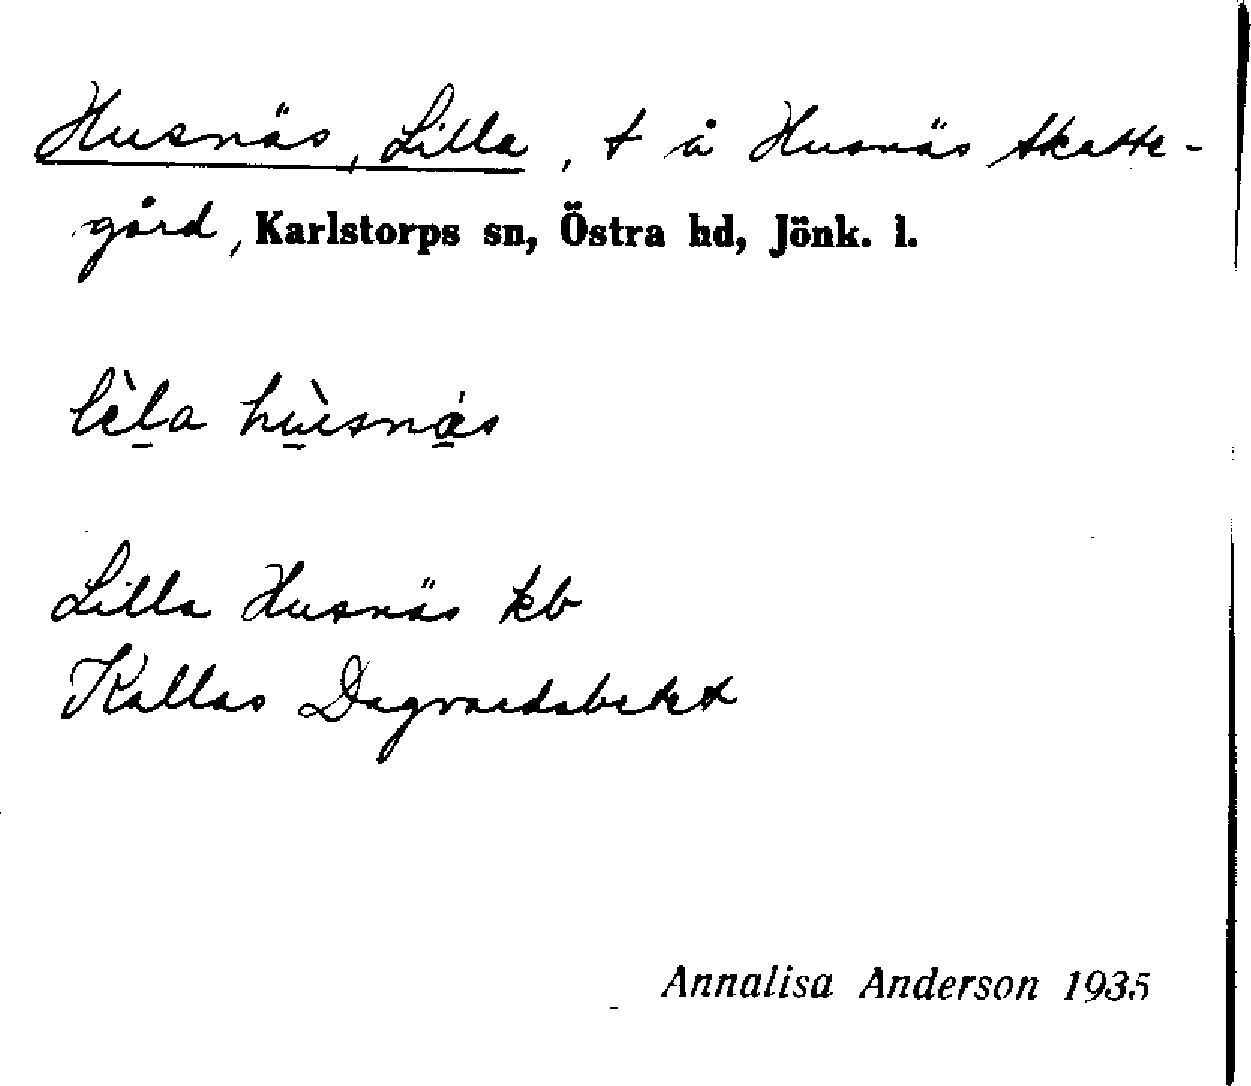 Husnäs, Lilla, t å Husnäs Skatte-
gård, Karlstorps sn, Östra hd, Jönk. l.
lèla hùsnás
Lilla Husnäs kb
Kallas Dagvardsbetet
Annalisa Anderson 1935